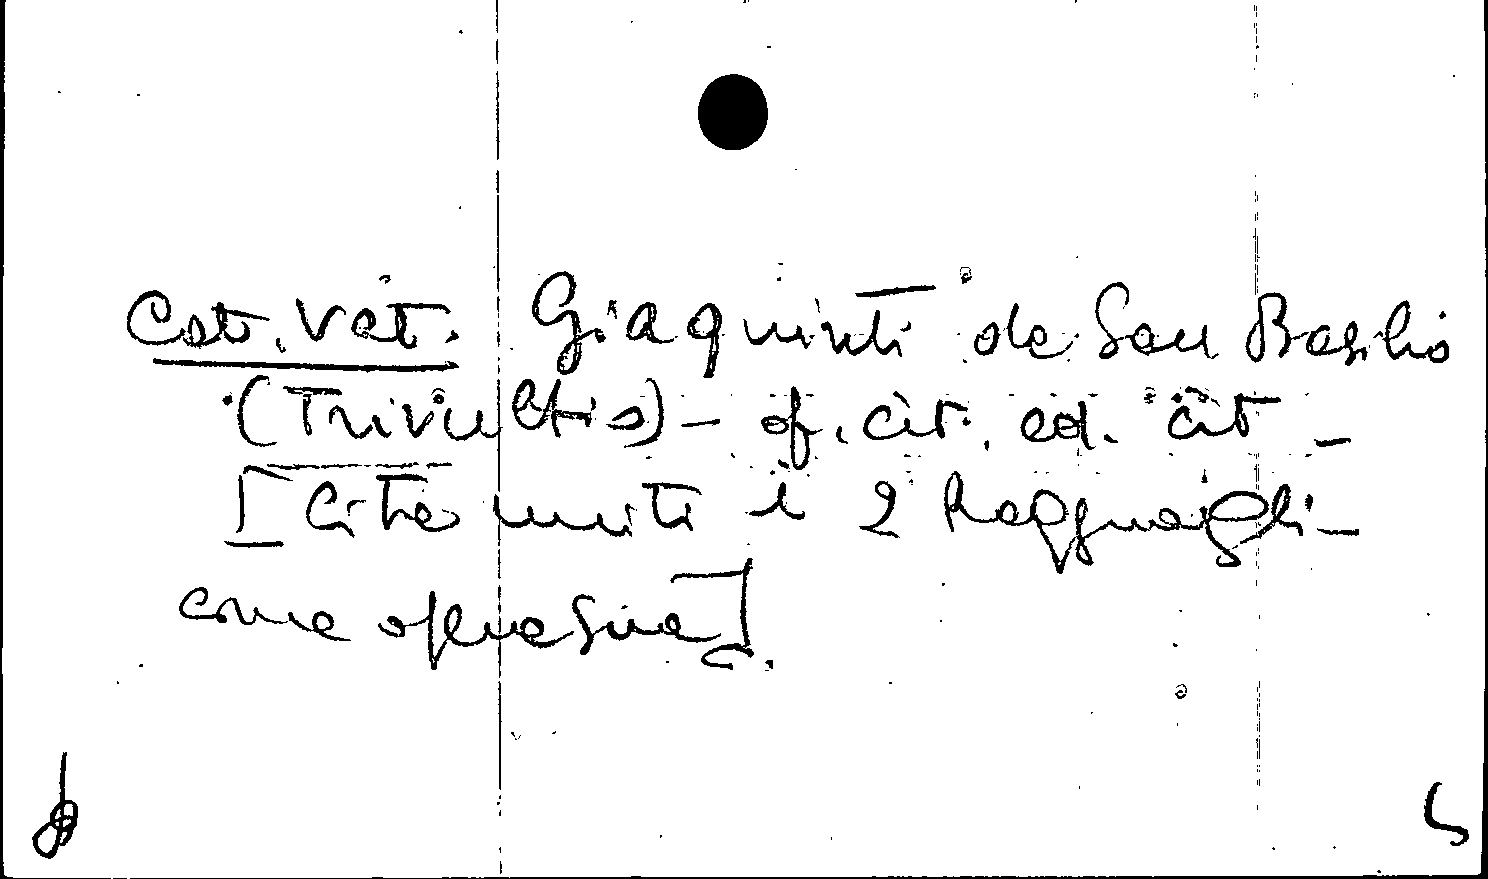 Cat. Vat. Giaquinti de San Basilio
(Trivultio) - op. cit. ed. cit -
[Cita uniti i 2 Ragguagli -
come opera sua].